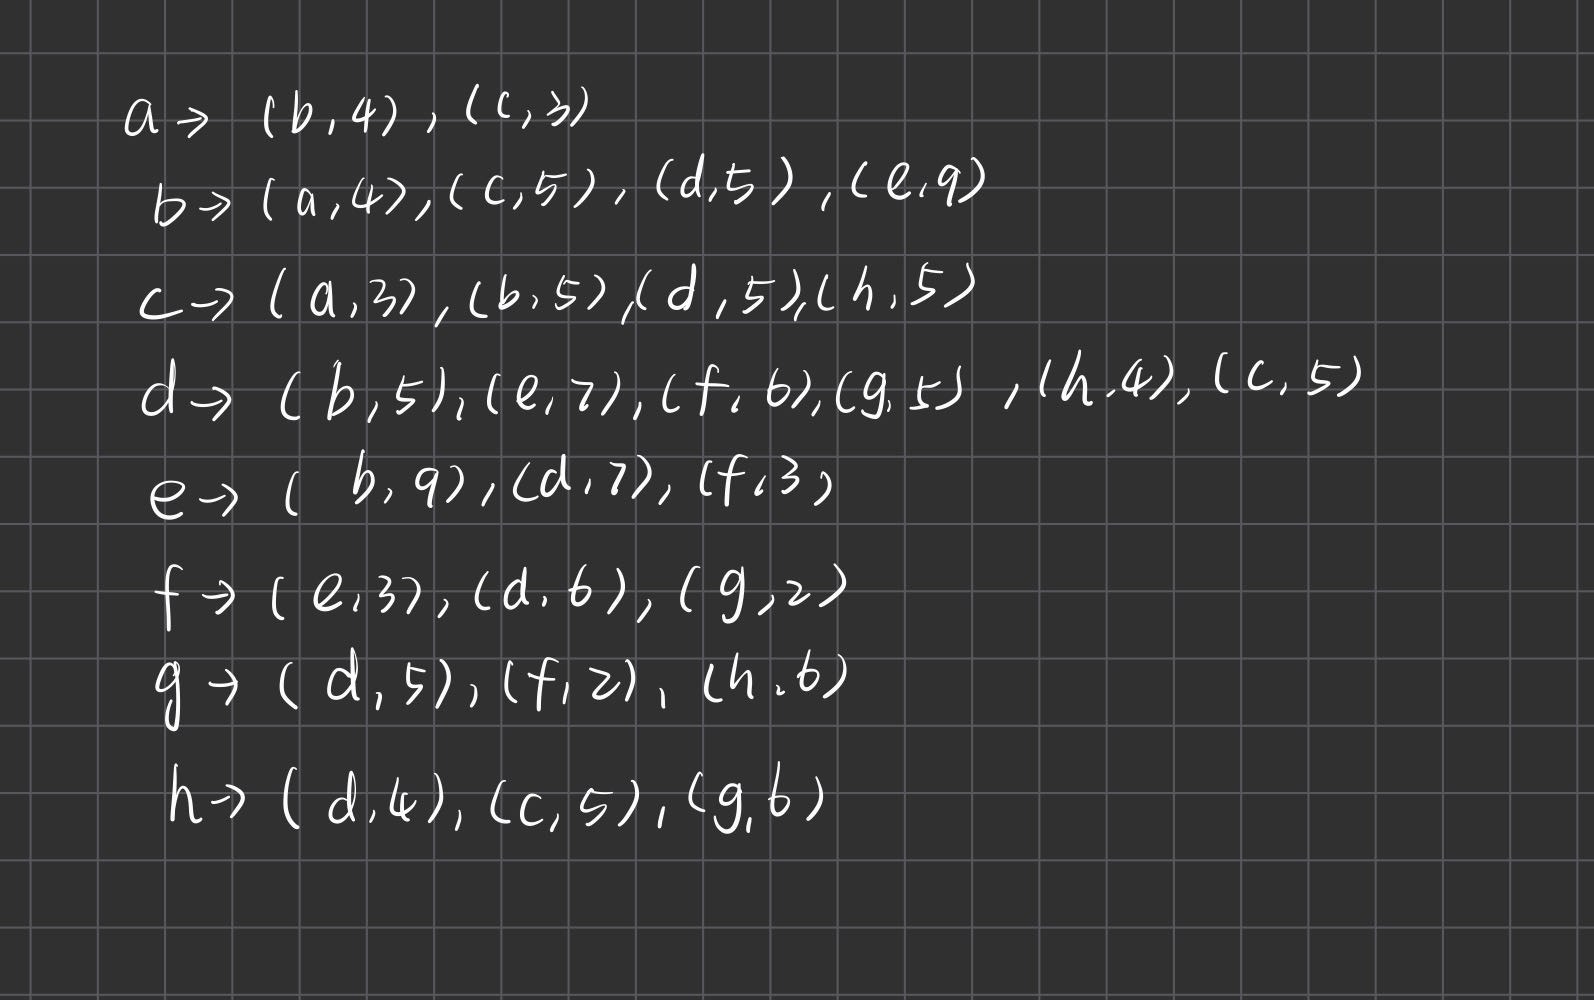 a → (b,4), (c,3)
b → (a,4), (c,5), (d,5), (e,9)
c → (a,3), (b,5), (d,5), (h,5)
d → (b,5), (e,7), (f,6), (g,5), (h,4), (c,5)
e → (b,9), (d,7), (f,3)
f → (e,3), (d,6), (g,2)
g → (d,5), (f,2), (h,6)
h → (d,4), (c,5), (g,6)